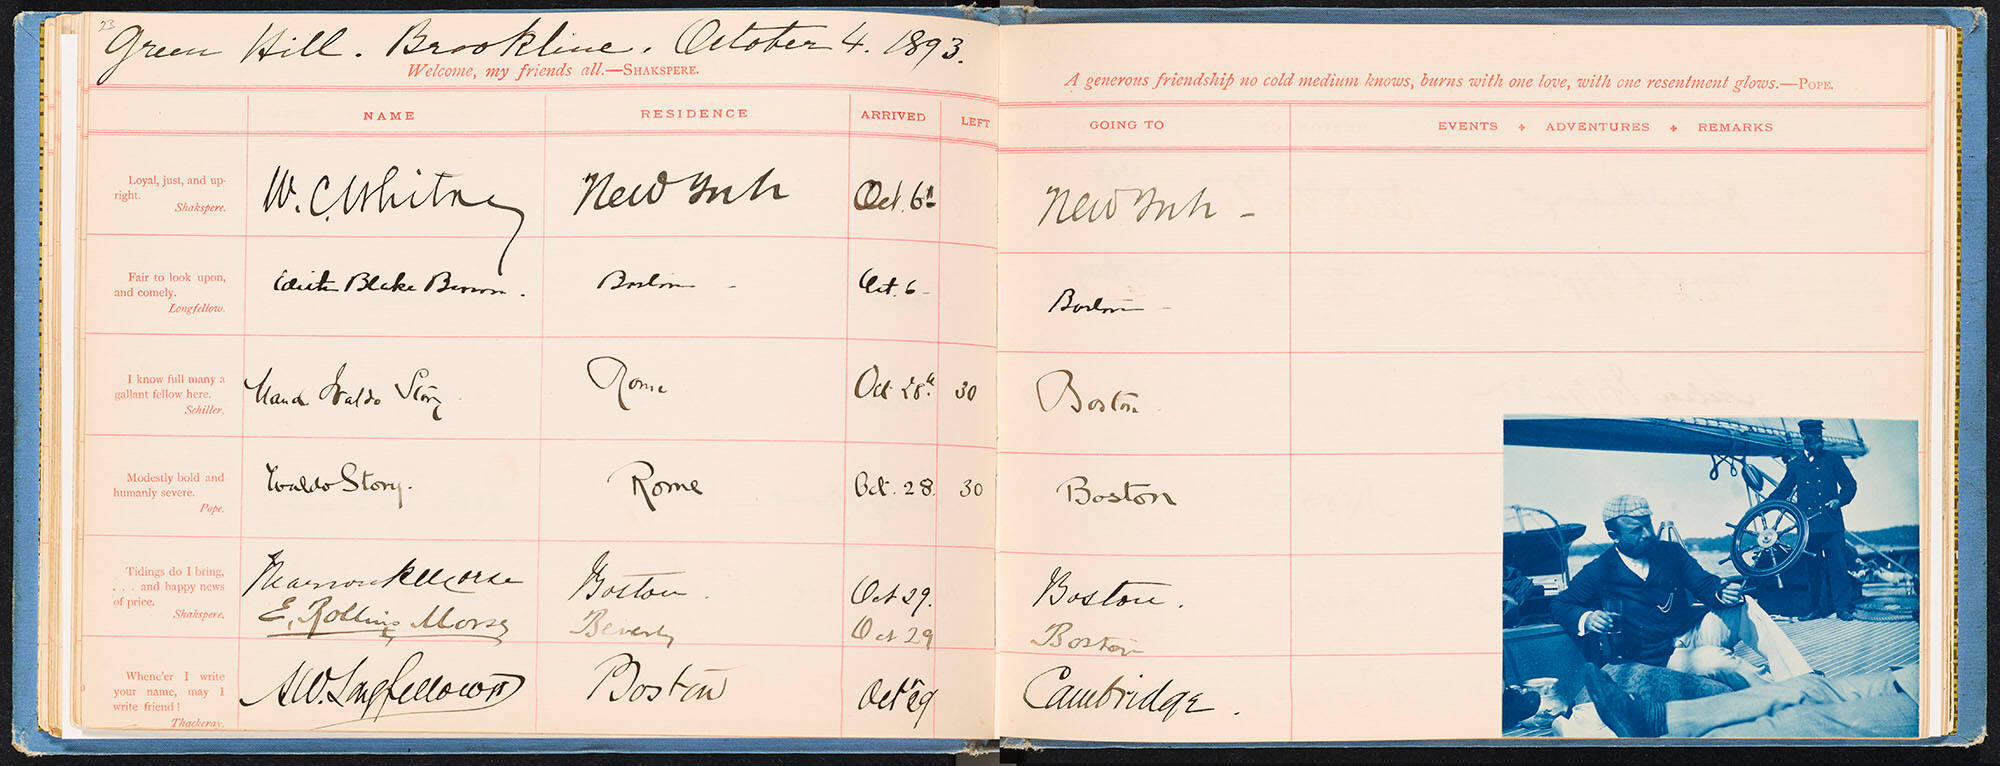 23
Green Hill. Brookline. October 4. 1893.
Welcome, my friends all.—SHAKSPERE.
NAME RESIDENCE ARRIVED LEFT
Loyal, just, and up-
right.
Shakspere.
W. C. Whitney New York Oct. 6th
Fair to look upon,
and comely.
Longfellow.
Edith Blake Brown. Boston - Oct. 6-
I know full many a
gallant fellow here.
Schiller.
Maud Waldo Story Rome Oct 28th. 30
Modestly bold and
humanly severe.
Pope.
Waldo Story. Rome Oct. 28. 30
Tidings do I bring,
. . . and happy news
of price.
Shakspere.
Morse Boston. Oct 29.
E. Rollins Morse Beverly Oct 29
Whene'er I write
your name, may I
write friend!
Thackeray.
A W. Longfellow Boston Oct 29
A generous friendship no cold medium knows, burns with one love, with one resentment glows.—POPE.
GOING TO EVENTS + ADVENTURES + REMARKS
New York -
Boston -
Boston
Boston
Boston.
Boston
Cambridge.